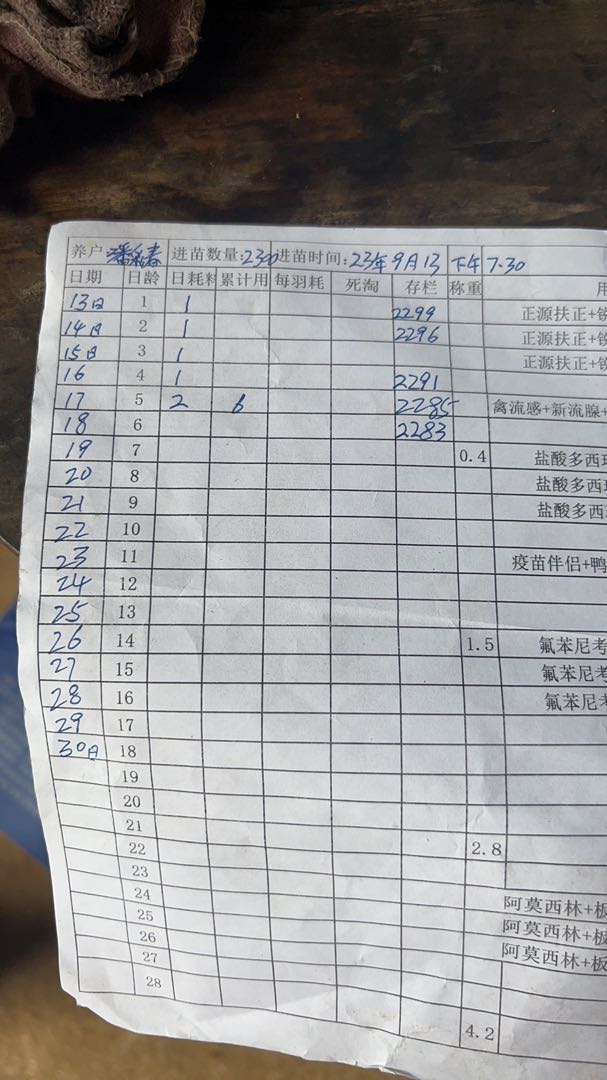 养户 潘 春 进苗数量:2300 进苗时间:23年9月13 下午 7.30
日期 日龄 日耗料 累计用 每羽耗 死淘 存栏 称重 用
13日 1 1 2299 正源扶正+锐
14日 2 1 2296 正源扶正+锐
15日 3 1 正源扶正+锐
16 4 1 2291
17 5 2 6 2285 禽流感+新流腺+
18 6 2283
19 7 0.4 盐酸多西环
20 8 盐酸多西
21 9 盐酸多西环
22 10
23 11 疫苗伴侣+鸭
24 12
25 13
26 14 1.5 氟苯尼考
27 15 氟苯尼考
28 16 氟苯尼考
29 17
30日 18
19
20
21
22 2.8
23
24 阿莫西林+板
25 阿莫西林+板
26 阿莫西林+板
27
28 4.2